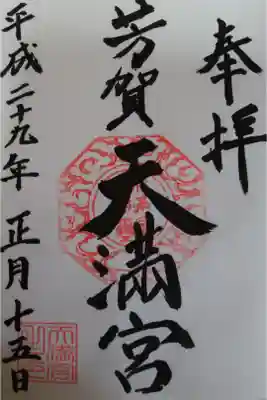 奉拝
芳賀天満宮
平成二十九年正月十五日